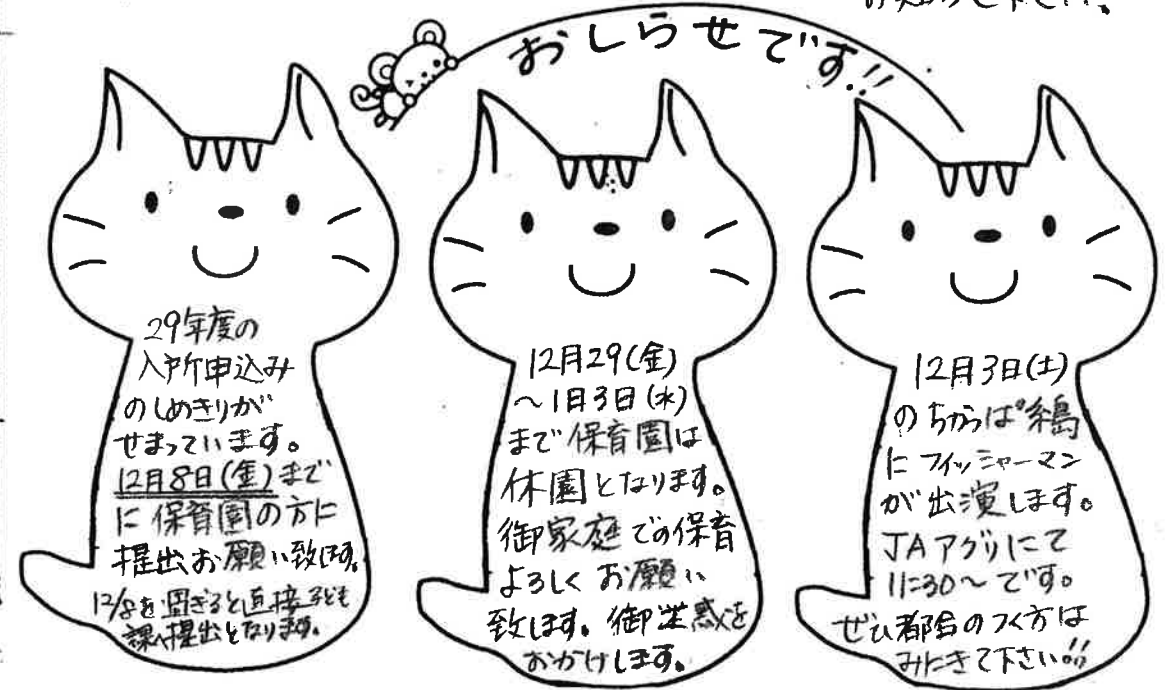 おしらせです!!
29年度の
入所申込み
のしめきりが
せまっています。
12月8日(金)まで
に保育園の方に
提出お願い致します。
12/8を過ぎると直接子ども
課へ提出となります。
12月29(金)
〜1月3日(水)
まで保育園は
休園となります。
御家庭での保育
よろしくお願い
致します。御迷惑を
おかけします。
12月3日(土)
のちからぱ糸島
にフィッシャーマン
が出演します。
JAアグリにて
11:30〜です。
ぜひ都合のつく方は
みにきて下さい!!